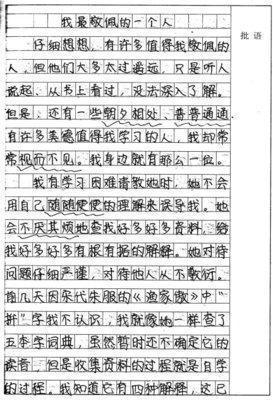 我最敬佩的一个人
批语
仔细想想，有许多值得我敬佩的
人，但他们大多太过遥远，只是听人
说起、从书上看过，没法深入了解。
但是，还有一些朝夕相处、普普通通、
有许多美德值得我学习的人，我却常
常视而不见。我身边就有那么一位。
我有学习困难请教她时，她不会
用自己随随便便的理解来误导我。她
会不厌其烦地查找好多好多资料，给
我好多好多有根有据的解释。她对待
问题仔细严谨，对待他人从不敷衍。
前几天因宋代朱服的《渔家傲》中“
拼”字我不认识，我就像她一样查了
五本字词典，虽然暂时还不确定它的
读音，但是收集资料的过程就是自学
的过程。我知道它有四种解释，这已